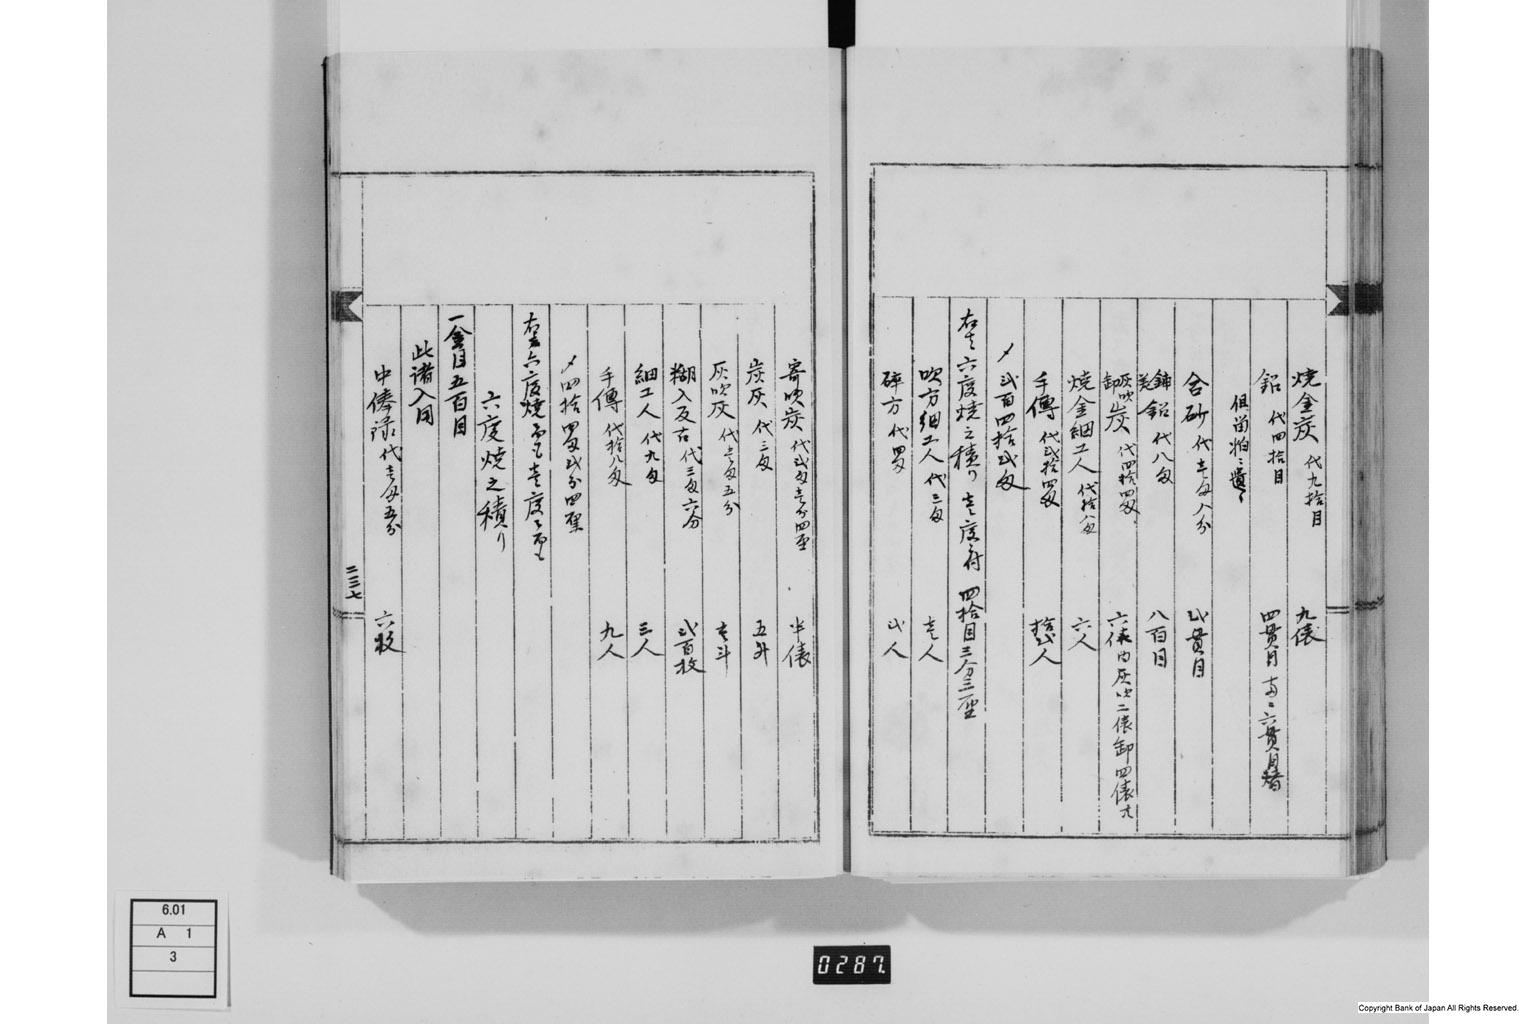 焼金炭 代九拾目 九俵
鉛 代四拾目 四貫目 六貫目
合砂 代壱匁八分 弐貫目
鉛 代八匁 八百目
灰吹卸炭 代四拾四匁 六俵 内灰吹二俵卸四俵
焼金細工人 代拾八匁 六人
手傳 代弐拾四匁 拾弐人
〆弐百四拾弐匁
六度焼之積り 壱度ニ付 四拾目三分三厘
吹方細工人 代三匁 壱人
砕方 代四匁 弐人
寄吹炭 代弐匁壱分四厘 半俵
炭灰 代三匁 五升
灰吹灰 代壱匁五分 壱斗
糊入反古 代三匁六分 弐百枚
細工人 代九匁 三人
手傳 代拾八匁 九人
〆四拾四匁弐分四厘
六度焼ニ而も壱度ニ而も
六度焼之積り
一金目五百目
此諸入用
中俸録 代壱匁五分 六枚
二三七
6.01
A 1
3
0287.
Copyright Bank of Japan All Rights Reserved.